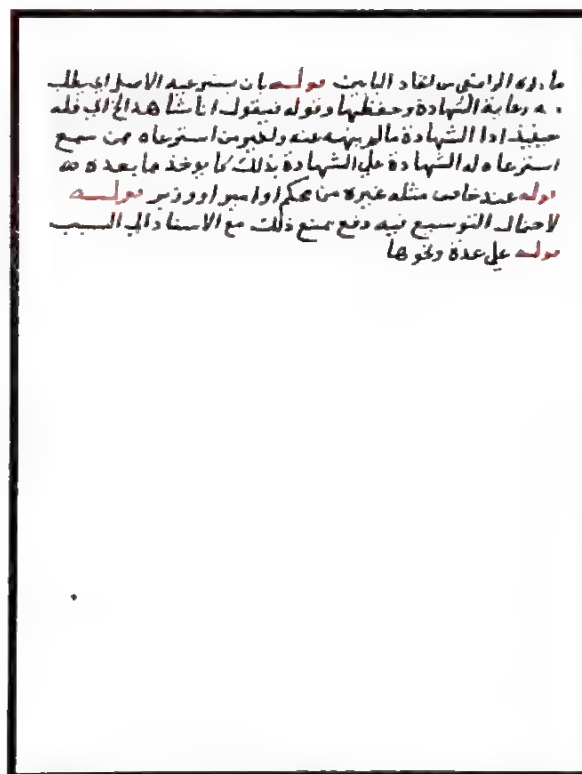 ما قوله بان يسترعيه الاصل اي يطلب
رعاية الشهادة وحفظها وقوله فيقول انا شاهد الخ اي فله
حينيذ ادا الشهادة مالم ينهه عنه ولغير من استرعاه ممن سمع
استرعاه له الشهادة علي الشهادة بذلك كما يوخذ مما بعده
قوله عند خاص مثله غيره من محكم او امير او وزير قولــه
لاحتمال التوسيع فيه دفع يمنع ذلك مع الاسناد الي السبب
قوله علي عدة ونحوها